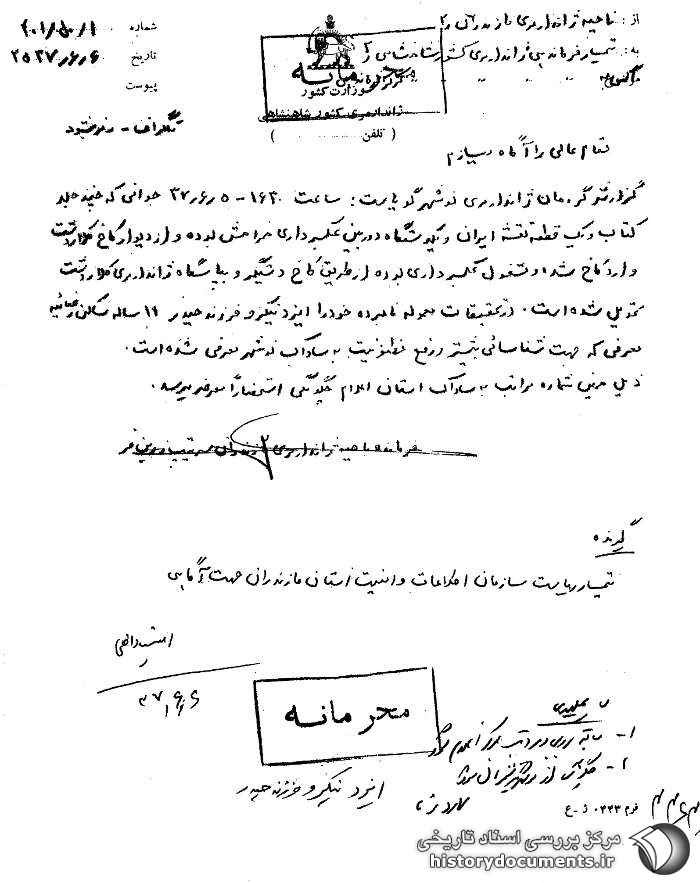 از: ناحیه ژاندارمری مازندران
به: تیمسار فرماندهی ژاندارمری کشور شاهنشاهی
شماره ۲۰۱/۵۰/۱
تاریخ ۲۵۳۷/۶/۶
پیوست
محرمانه
وزارت کشور
ژاندارمری کشور شاهنشاهی
( تلفن )
تلگراف -
مقام عالی را آگاه میسازم
گزارش گروهان ژاندارمری نوشهر گویاست: ساعت ۱۶۳۰ - ۳۷/۶/۵ جوانی که چند جلد
کتاب و یک قطعه نقشه ایران و یکدستگاه دوربین عکسبرداری همراهش بوده و از دیوار کاخ کلاردشت
وارد کاخ شده و مشغول عکسبرداری بوده از طریق کاخ دستگیر و به پاسگاه ژاندارمری کلاردشت
تحویل شده است. در تحقیقات معموله نامبرده خود را ایزد نیکرو فرزند حیدر ۱۹ ساله ساکن
معرفی که جهت شناسائی بیشتر و رفع مظنونیت به ساواک نوشهر معرفی شده است.
ذیل همین شماره مراتب به ساواک استان اعلام چگونگی استحضاراً معروض میرسد.
فرمانده ناحیه ژاندارمری مازندران سرتیپ
گیرنده
تیمسار ریاست سازمان اطلاعات و امنیت استان مازندران جهت آگاهی
۳۷/۶/۶
محرمانه
۱-
۲-
ایزد نیکرو فرزند حیدر
فرم ۰۳۳۳ ژ-ع
مرکز بررسی اسناد تاریخی
historydocuments.ir